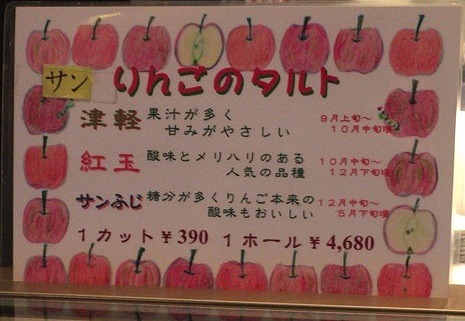 サン
りんごのタルト
津軽 果汁が多く 9月上旬〜
甘みがやさしい 10月中旬頃
紅玉 酸味とメリハリのある 10月中旬〜
人気の品種 12月下旬頃
サンふじ 糖分が多くりんご本来の 12月中旬〜
酸味もおいしい 5月下旬頃
1カット¥390 1ホール¥4,680